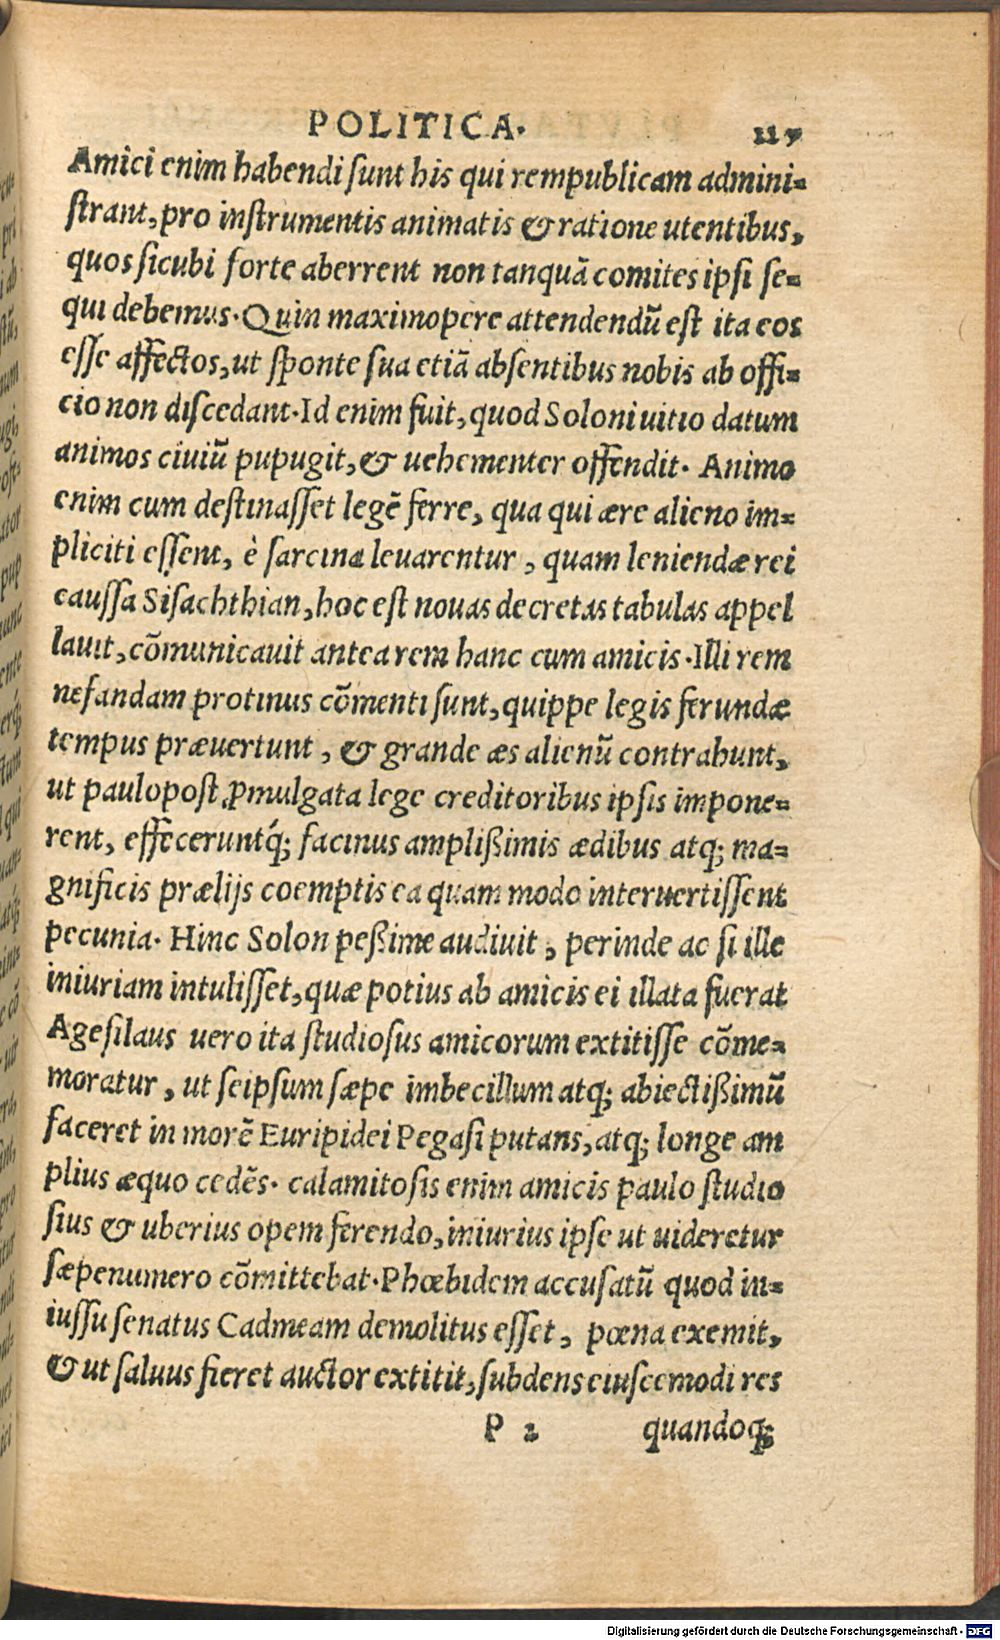 POLITICA. 117
Amici enim habendi sunt his qui rempublicam admini=
strant, pro instrumentis animatis & ratione utentibus,
quos sicubi forte aberrent non tanquā comites ipsi se=
qui debemus. Quin maximopere attendendū est ita eos
esse affectos, ut sponte sua etiā absentibus nobis ab offi=
cio non discedant. Id enim fuit, quod Soloni uitio datum
animos ciuiū pupugit, & uehementer offendit. Animo
enim cum destinasset legē ferre, qua qui ære alieno im=
pliciti essent, è sarcina leuarentur, quam leniendæ rei
caussa Sisachthian, hoc est nouas decretas tabulas appel
lauit, cōmunicauit antea rem hanc cum amicis. Illi rem
nefandam protinus cōmenti sunt, quippe legis ferundæ
tempus præuertunt, & grande æs alienū contrahunt,
ut paulopost ꝓmulgata lege creditoribus ipsis impone=
rent, effeceruntq́; facinus amplißimis ædibus atq; ma=
gnificis prælijs coemptis ea quam modo interuertissent
pecunia. Hinc Solon peßime audiuit, perinde ac si ille
iniuriam intulisset, quæ potius ab amicis ei illata fuerat
Agesilaus uero ita studiosus amicorum extitisse cōme=
moratur, ut seipsum sæpe imbecillum atq; abiectißimū
faceret in morē Euripidei Pegasi putans, atq; longe am
plius æquo cedēs. calamitosis enim amicis paulo studio
sius & uberius opem ferendo, iniurius ipse ut uideretur
sæpenumero cōmittebat. Phœbidem accusatū quod in=
iussu senatus Cadmeam demolitus esset, pœna exemit,
& ut saluus fieret auctor extitit, subdens eiuscemodi res
P 2 quandoq;
Digitalisierung gefördert durch die Deutsche Forschungsgemeinschaft - DFG